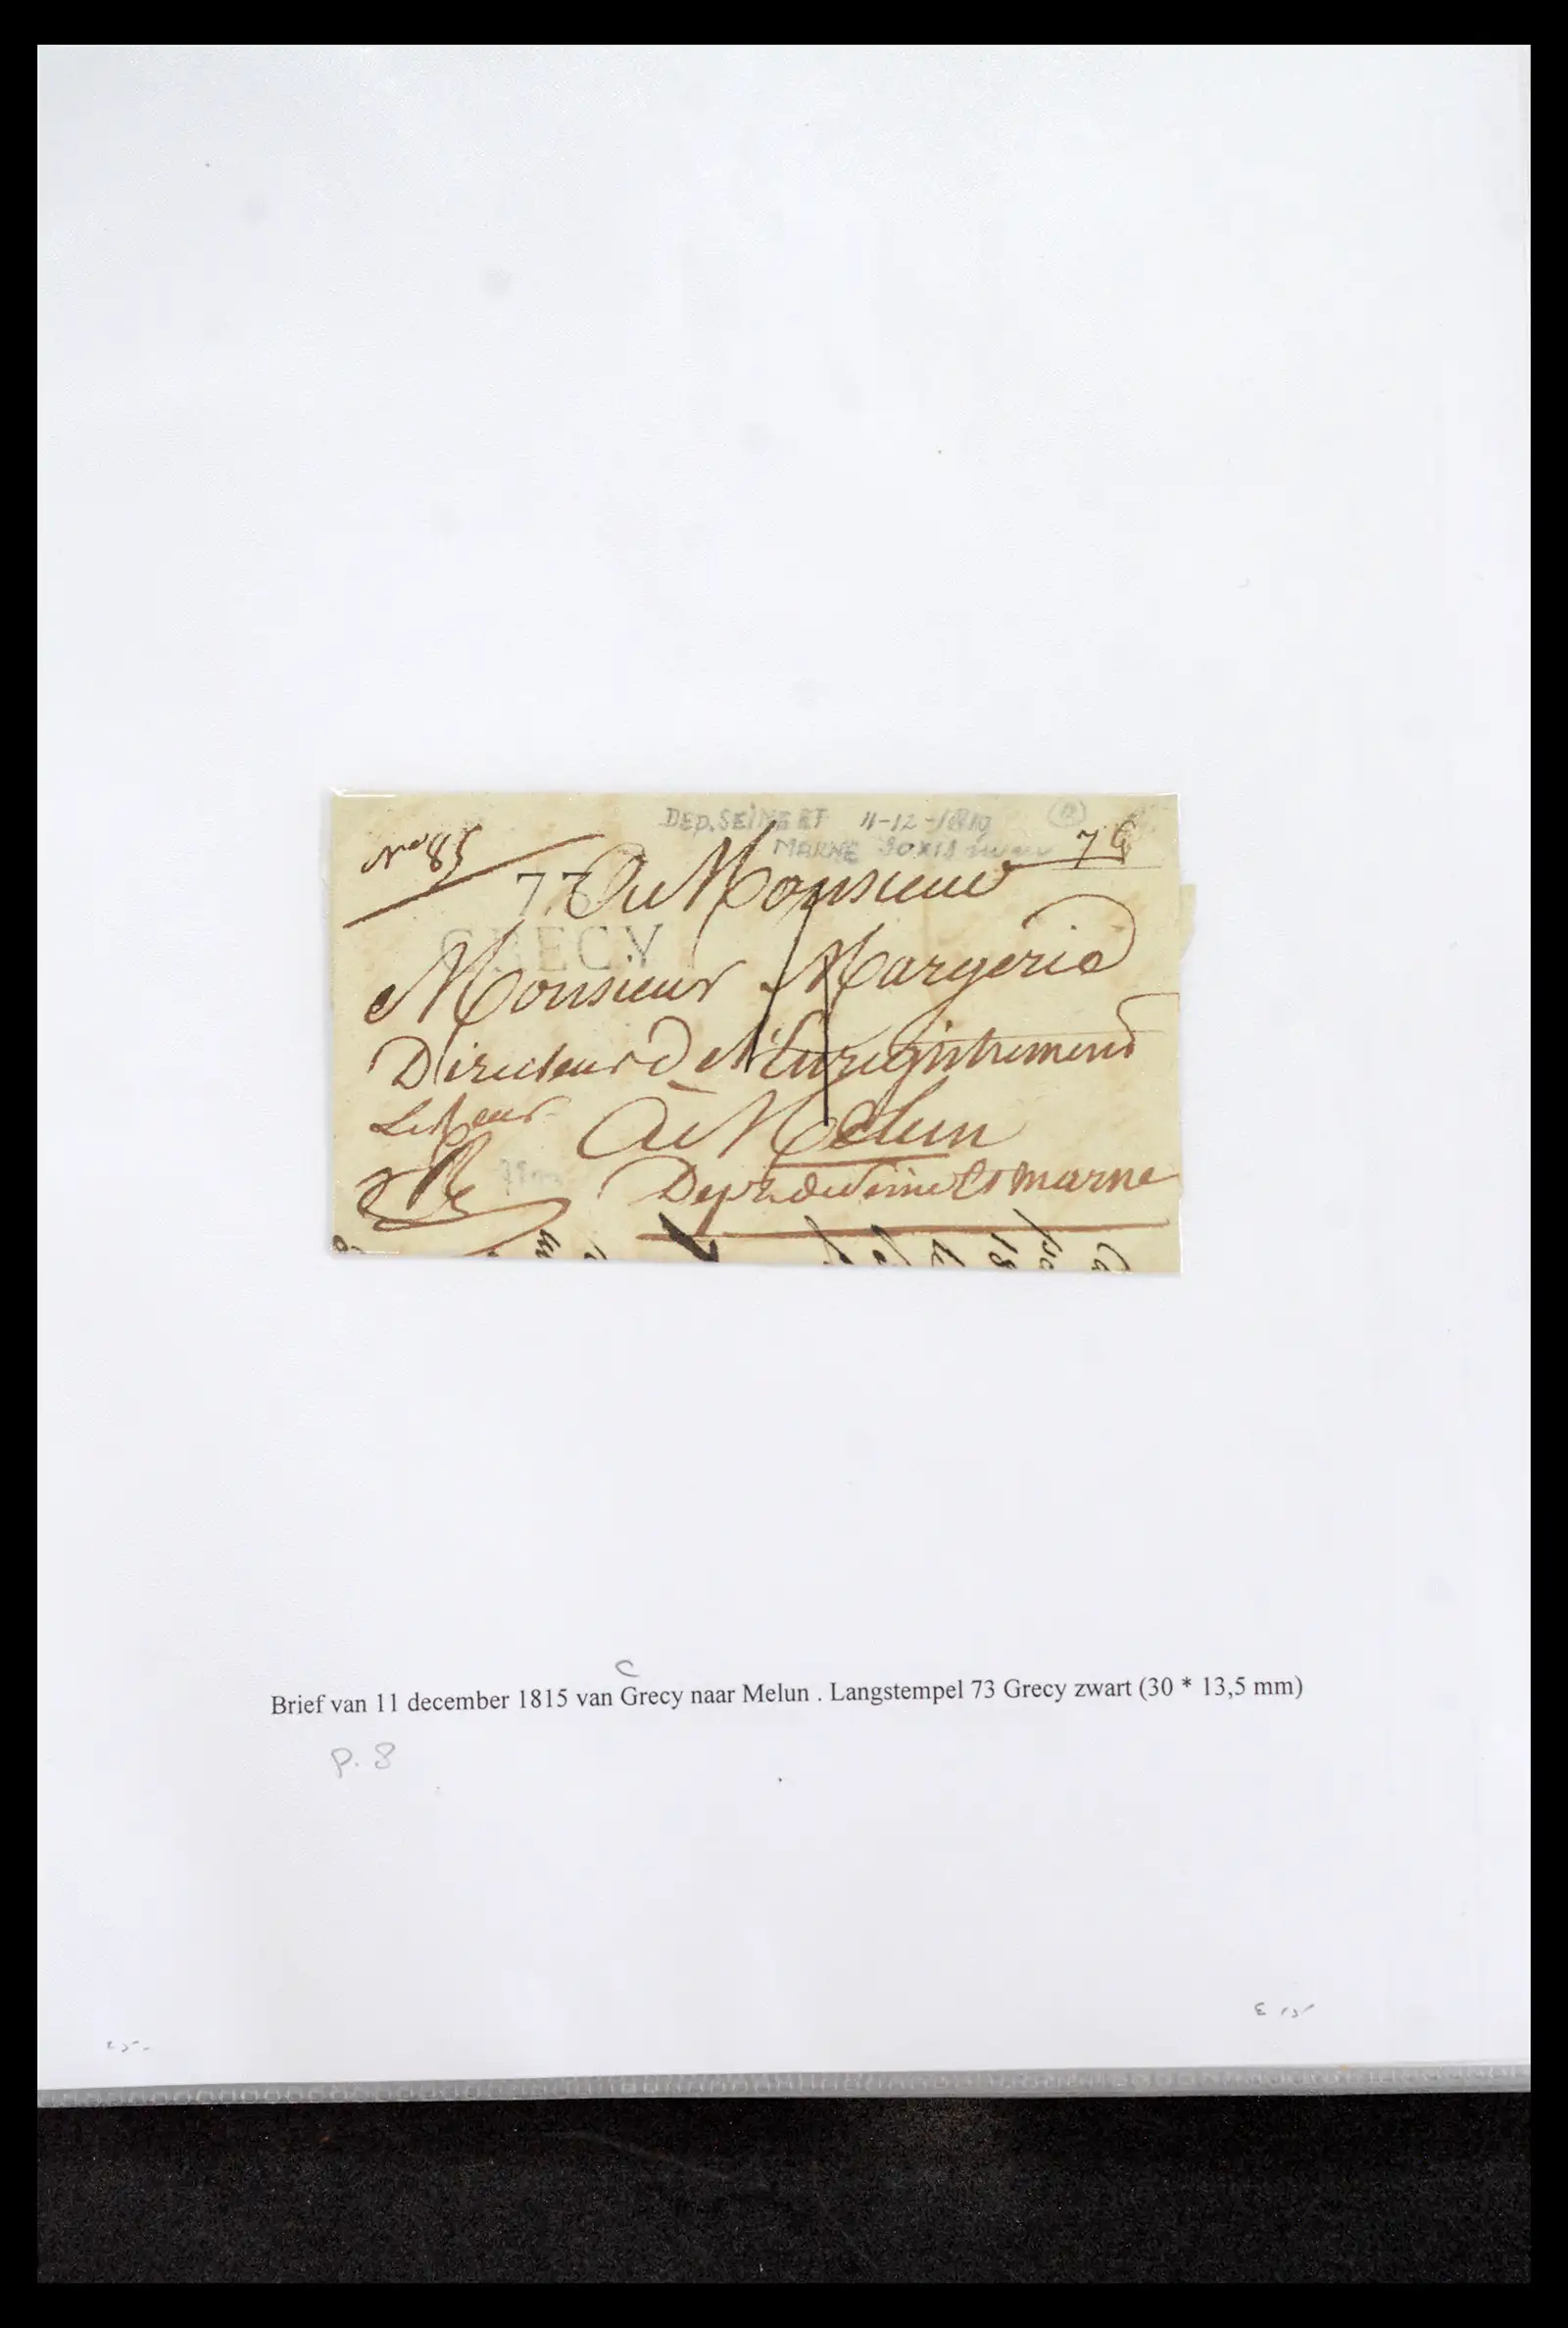 DEP. SEINE ET 11-12-1819
MARNE 30X13
N° 85
73
CRECY
A Monsieur
Monsieur Margerie
Directeur de l'Enregistrement
A Melun
Dept. de Seine Et marne
C
Brief van 11 december 1815 van Grecy naar Melun . Langstempel 73 Grecy zwart (30 * 13,5 mm)
p. 8